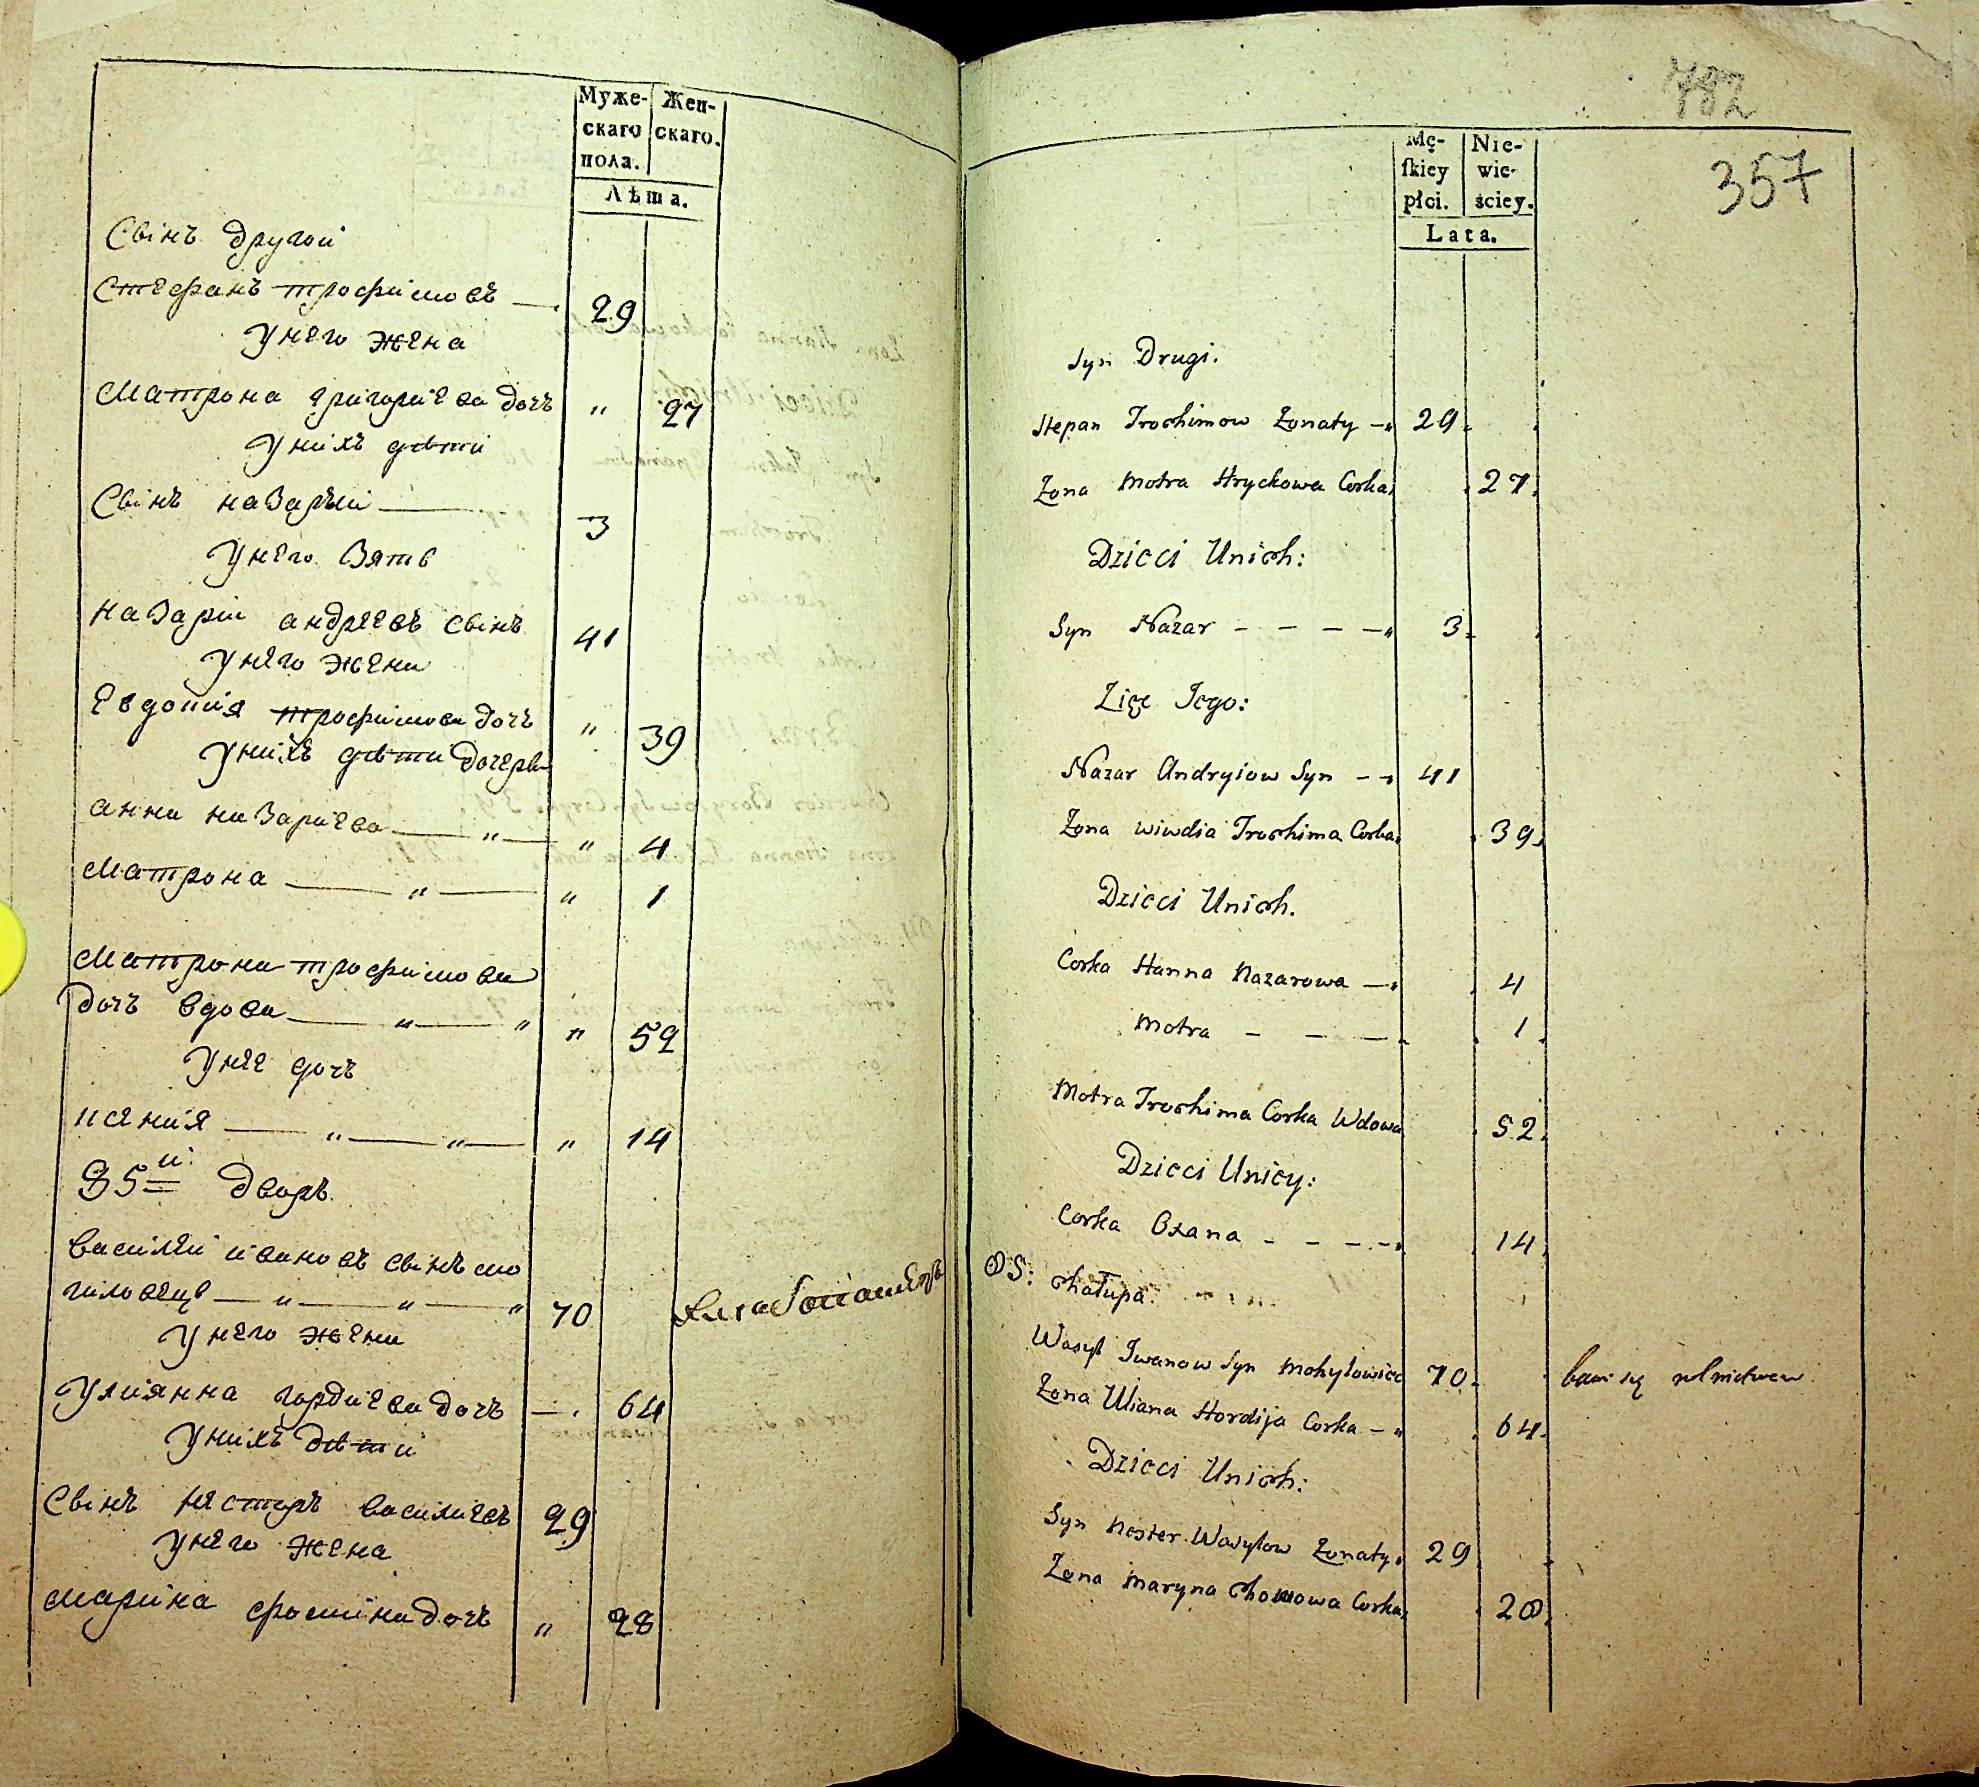 Муже- Жен-
скаго скаго.
пола.
Лѣта.
Свінъ другой
Стефанъ трофимовъ — 29
У него жена
Матрона григориева дочъ " 27
У нихъ дѣти
Свінъ назарій — 3
У него Зять
назарій андреевъ свінъ 41
У него жена
Евдокия трофимова дочъ " 39
У нихъ дѣти дочери
анна назариева — " — " 4
Матрона — " — " 1
Матрона трофимова
дочъ вдова — " — " " 52
У нее дочъ
ксения — " — " — " 14
85й дворъ
Василей ивановъ свінъ мо
гиловецъ — " — " — " 70
У него жена
Улиянна гордиева дочъ — . 64
У нихъ дѣти
Свінъ нестеръ василиевъ 29
У него жена
Марина фомина дочъ " 28
782
357
Mę- Nie-
skiey wie-
płci. ściey.
Lata.
Syn Drugi.
Stepan Trochimow Żonaty — 29.
Żona Motra Hryckowa Corka 27.
Dzieci Unich:
Syn Nazar - - - - 3.
Zięc Jego:
Nazar Andryiow Syn - - 41
Żona Wiwdia Trochima Corka 39.
Dzieci Unich.
Corka Hanna Nazarowa — 4
Motra - - - 1.
Motra Trochima Corka Wdowa 52.
Dzieci Unicy:
Corka Oxana - - - - 14.
85: Chałupa.
Wasyl Iwanow Syn Mohyłowiec 70. bawi się rolnictwem
Żona Uliana Hordija Corka - 64.
Dzieci Unich:
Syn Nester Wasylow Żonaty. 29
Żona Maryna Chomowa Corka. 28.